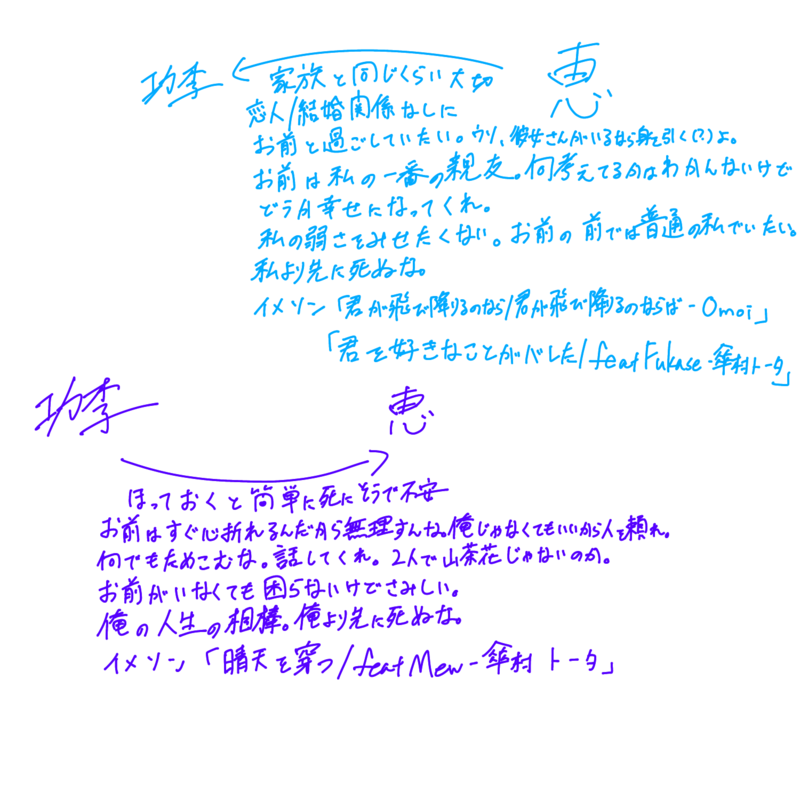 功李 恵
家族と同じくらい大切
恋人/結婚関係なしに
お前と過ごしていたい。ウソ、彼女さんがいるなら身を引く(?)よ。
お前は私の一番の親友。何考えてるかはわかんないけど
どうか幸せになってくれ。
私の弱さをみせたくない。お前の前では普通の私でいたい。
私より先に死ぬな。
イメソン「君が飛び降りるのなら/君が飛び降りるのならば-Omoi」
「君を好きなことがバレした/feat Fukase-傘村トータ」
功李 恵
ほっておくと簡単に死にそうで不安
お前はすぐ心折れるんだから無理すんな。俺じゃなくてもいいから人を頼れ。
何でもためこむな。話してくれ。2人で山茶花じゃないのか。
お前がいなくても困らないけどさみしい。
俺の人生の相棒。俺より先に死ぬな。
イメソン「晴天を穿つ/feat Mew-傘村トータ」